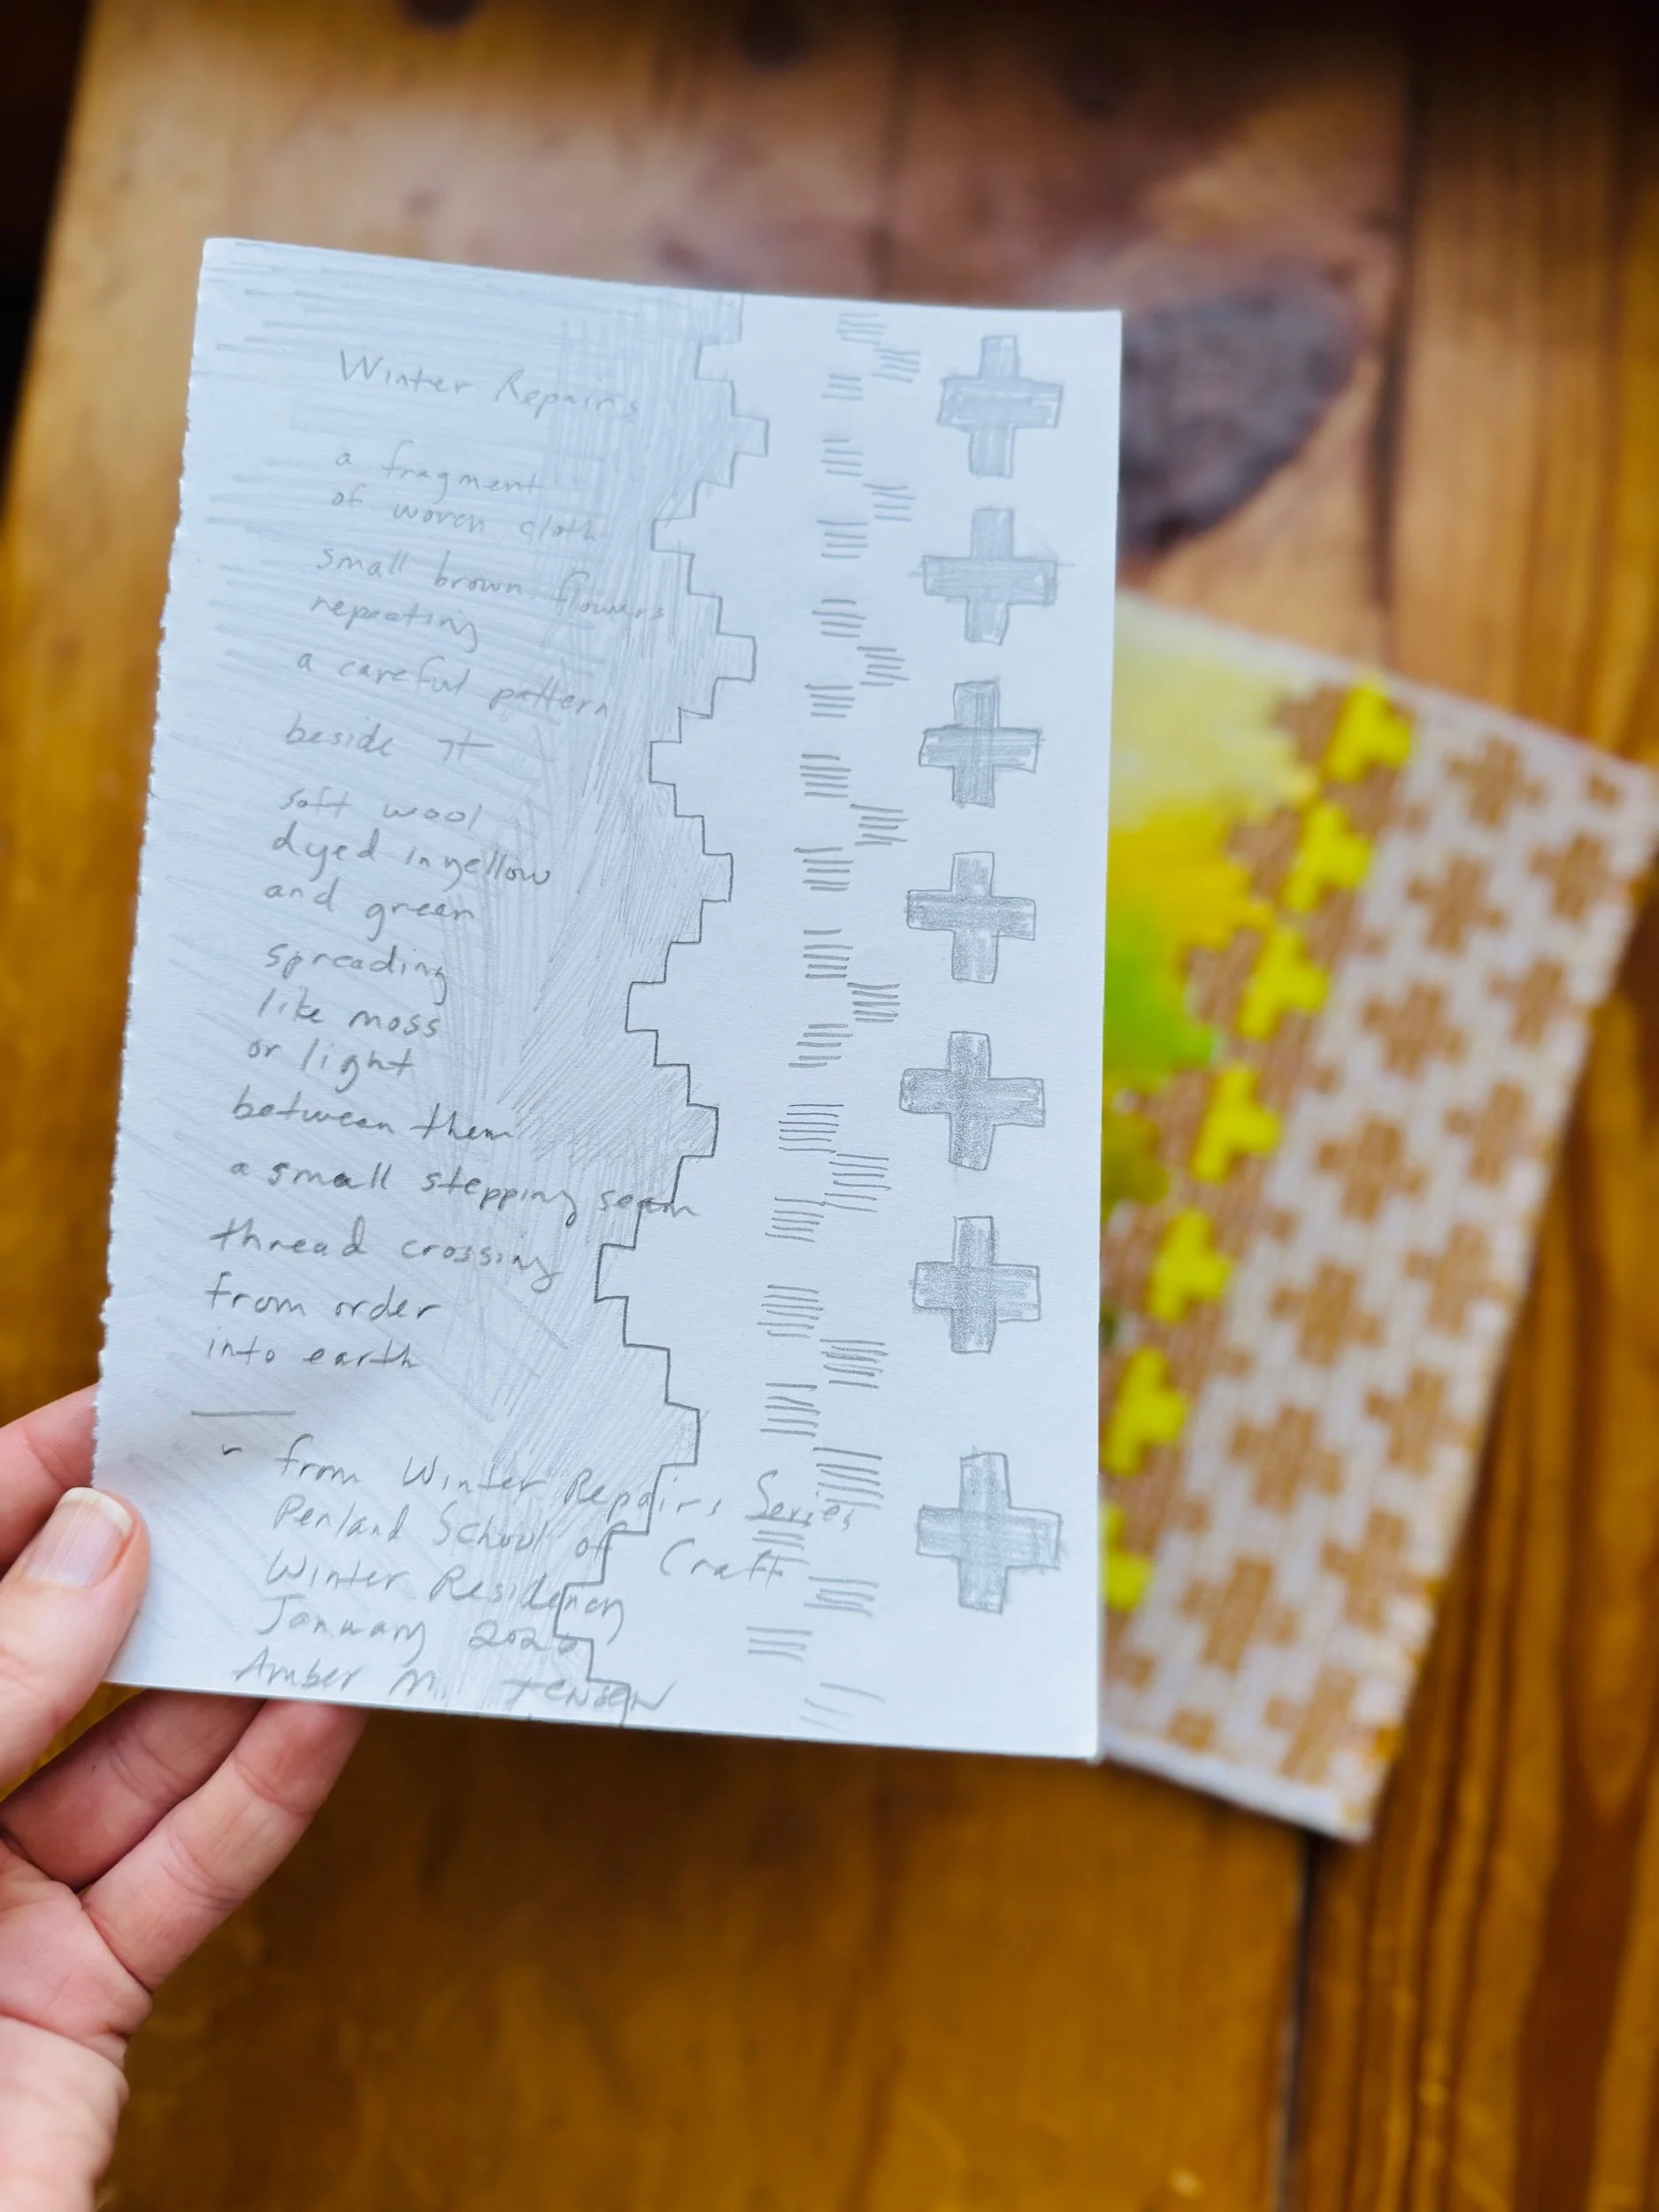 Winter Repairs
a fragment
of woven cloth
small brown flowers
repeating
a careful pattern
beside it
soft wool
dyed in yellow
and green
spreading
like moss
or light
between them
a small stepping seam
thread crossing
from order
into earth
from Winter Repairs Series
Penland School of Craft
Winter Residency
January 2026
Amber M. JENSEN